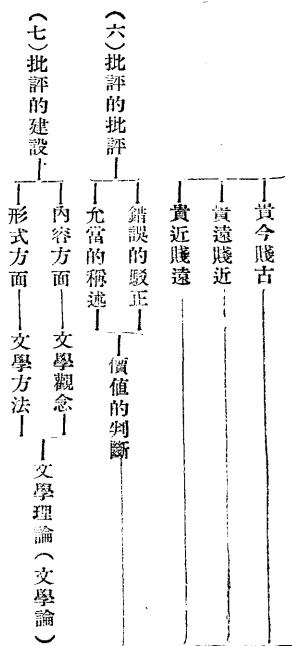 貴今賤古
貴遠賤近
貴近賤遠
(六)批評的批評
錯誤的駁正
允當的稱述
價值的判斷
(七)批評的建設
內容方面——文學觀念
形式方面——文學方法
文學理論(文學論)